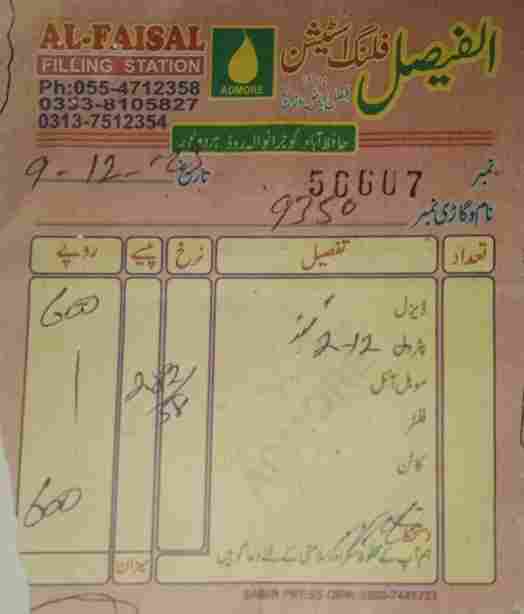 AL-FAISAL
FILLING STATION
الفیصل فلنگ اسٹیشن
ADMORE
Ph:055-4712358
0333-8105827
0313-7512354
حافظ آباد گوجرانوالہ روڈ
نمبر 50607
تاریخ 9-12-
نام و گاڑی نمبر 9350
تعداد تفصیل نرخ پیسے روپے
ڈیزل 600
پٹرول 2-12
موبل آئل 282/58
فلٹر
کاٹن
600
دستخط
میزان